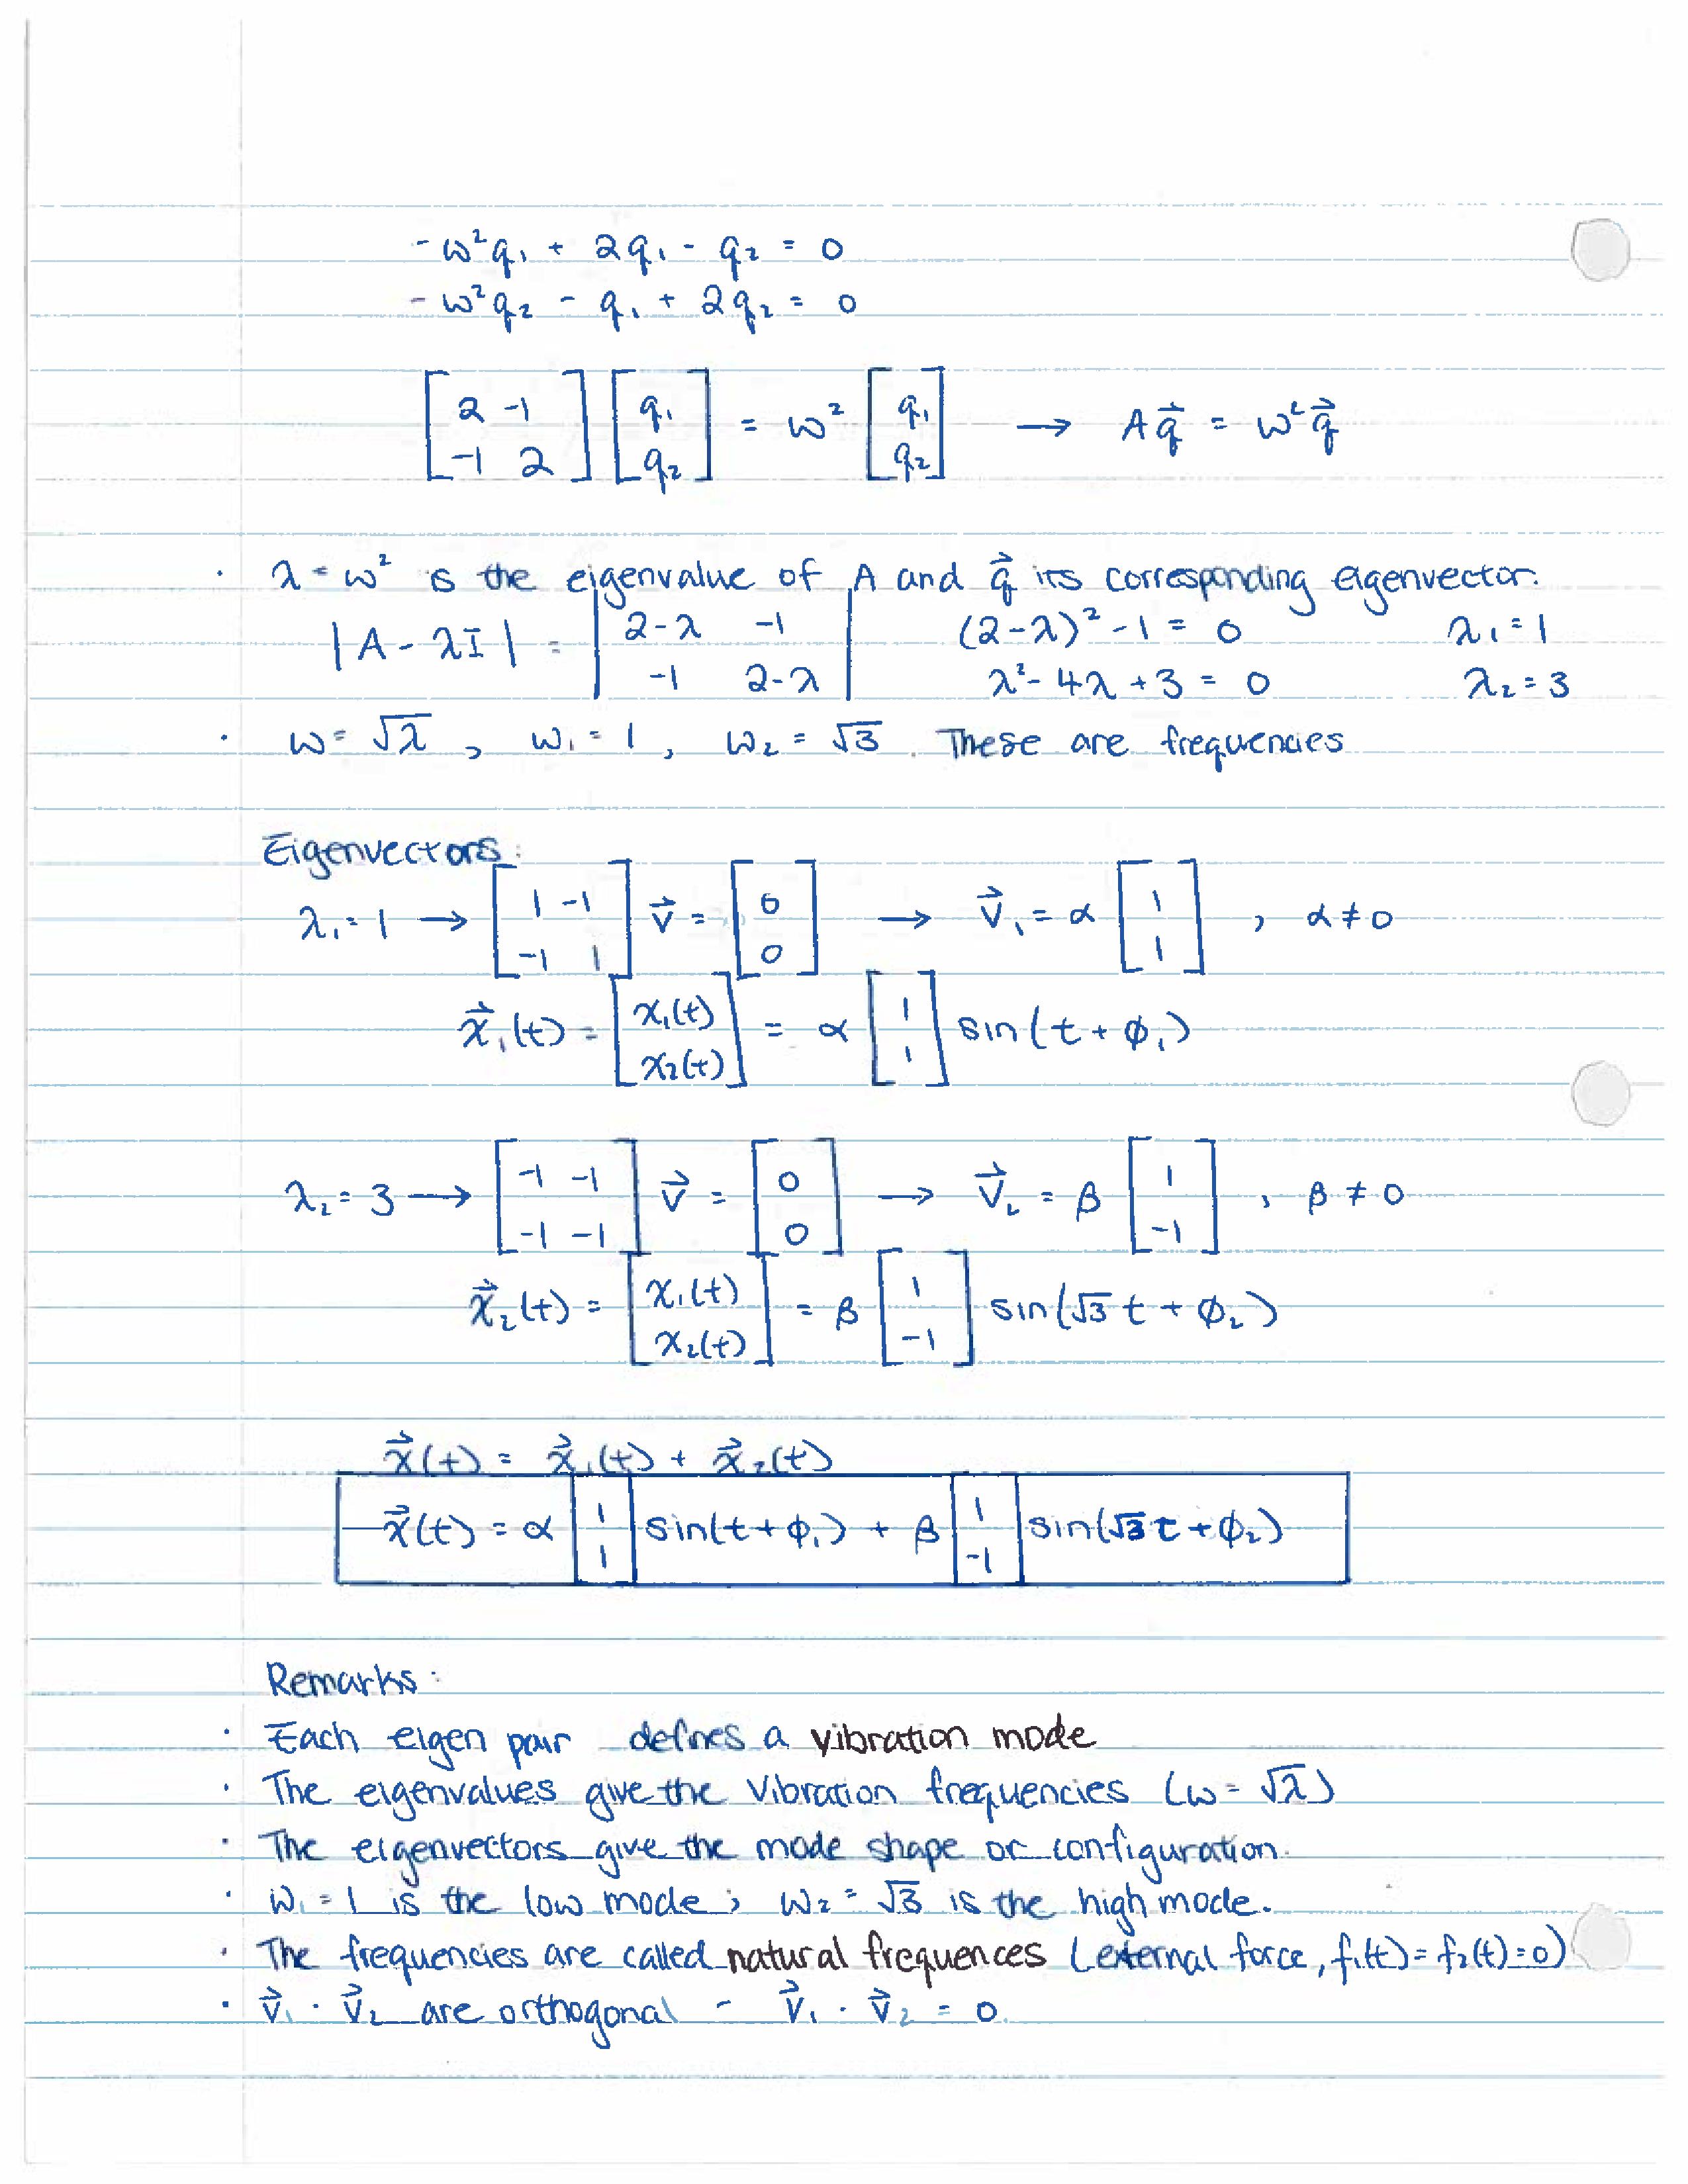 -ω²q₁ + 2q₁ - q₂ = 0
-ω²q₂ - q₁ + 2q₂ = 0
[2 -1; -1 2] [q₁; q₂] = ω² [q₁; q₂] → Aq⃗ = ω²q⃗
· λ = ω² is the eigenvalue of A and q⃗ its corresponding eigenvector.
|A - λI| = |2-λ -1; -1 2-λ| (2-λ)² - 1 = 0 λ₁ = 1
λ² - 4λ + 3 = 0 λ₂ = 3
· ω = √λ , ω₁ = 1 , ω₂ = √3 . These are frequencies
Eigenvectors:
λ₁ = 1 → [1 -1; -1 1] v⃗ = [0; 0] → v⃗₁ = α [1; 1] , α ≠ 0
x⃗₁(t) = [x₁(t); x₂(t)] = α [1; 1] sin(t + ϕ₁)
λ₂ = 3 → [-1 -1; -1 -1] v⃗ = [0; 0] → v⃗₂ = β [1; -1] , β ≠ 0
x⃗₂(t) = [x₁(t); x₂(t)] = β [1; -1] sin(√3 t + ϕ₂)
x⃗(t) = x⃗₁(t) + x⃗₂(t)
x⃗(t) = α [1; 1] sin(t + ϕ₁) + β [1; -1] sin(√3 t + ϕ₂)
Remarks:
· Each eigen pair defines a vibration mode
· The eigenvalues give the vibration frequencies (ω = √λ)
· The eigenvectors give the mode shape or configuration.
· ω₁ = 1 is the low mode; ω₂ = √3 is the high mode.
· The frequencies are called natural frequences (external force, f₁(t) = f₂(t) = 0)
· v⃗₁ · v⃗₂ are orthogonal - v⃗₁ · v⃗₂ = 0.